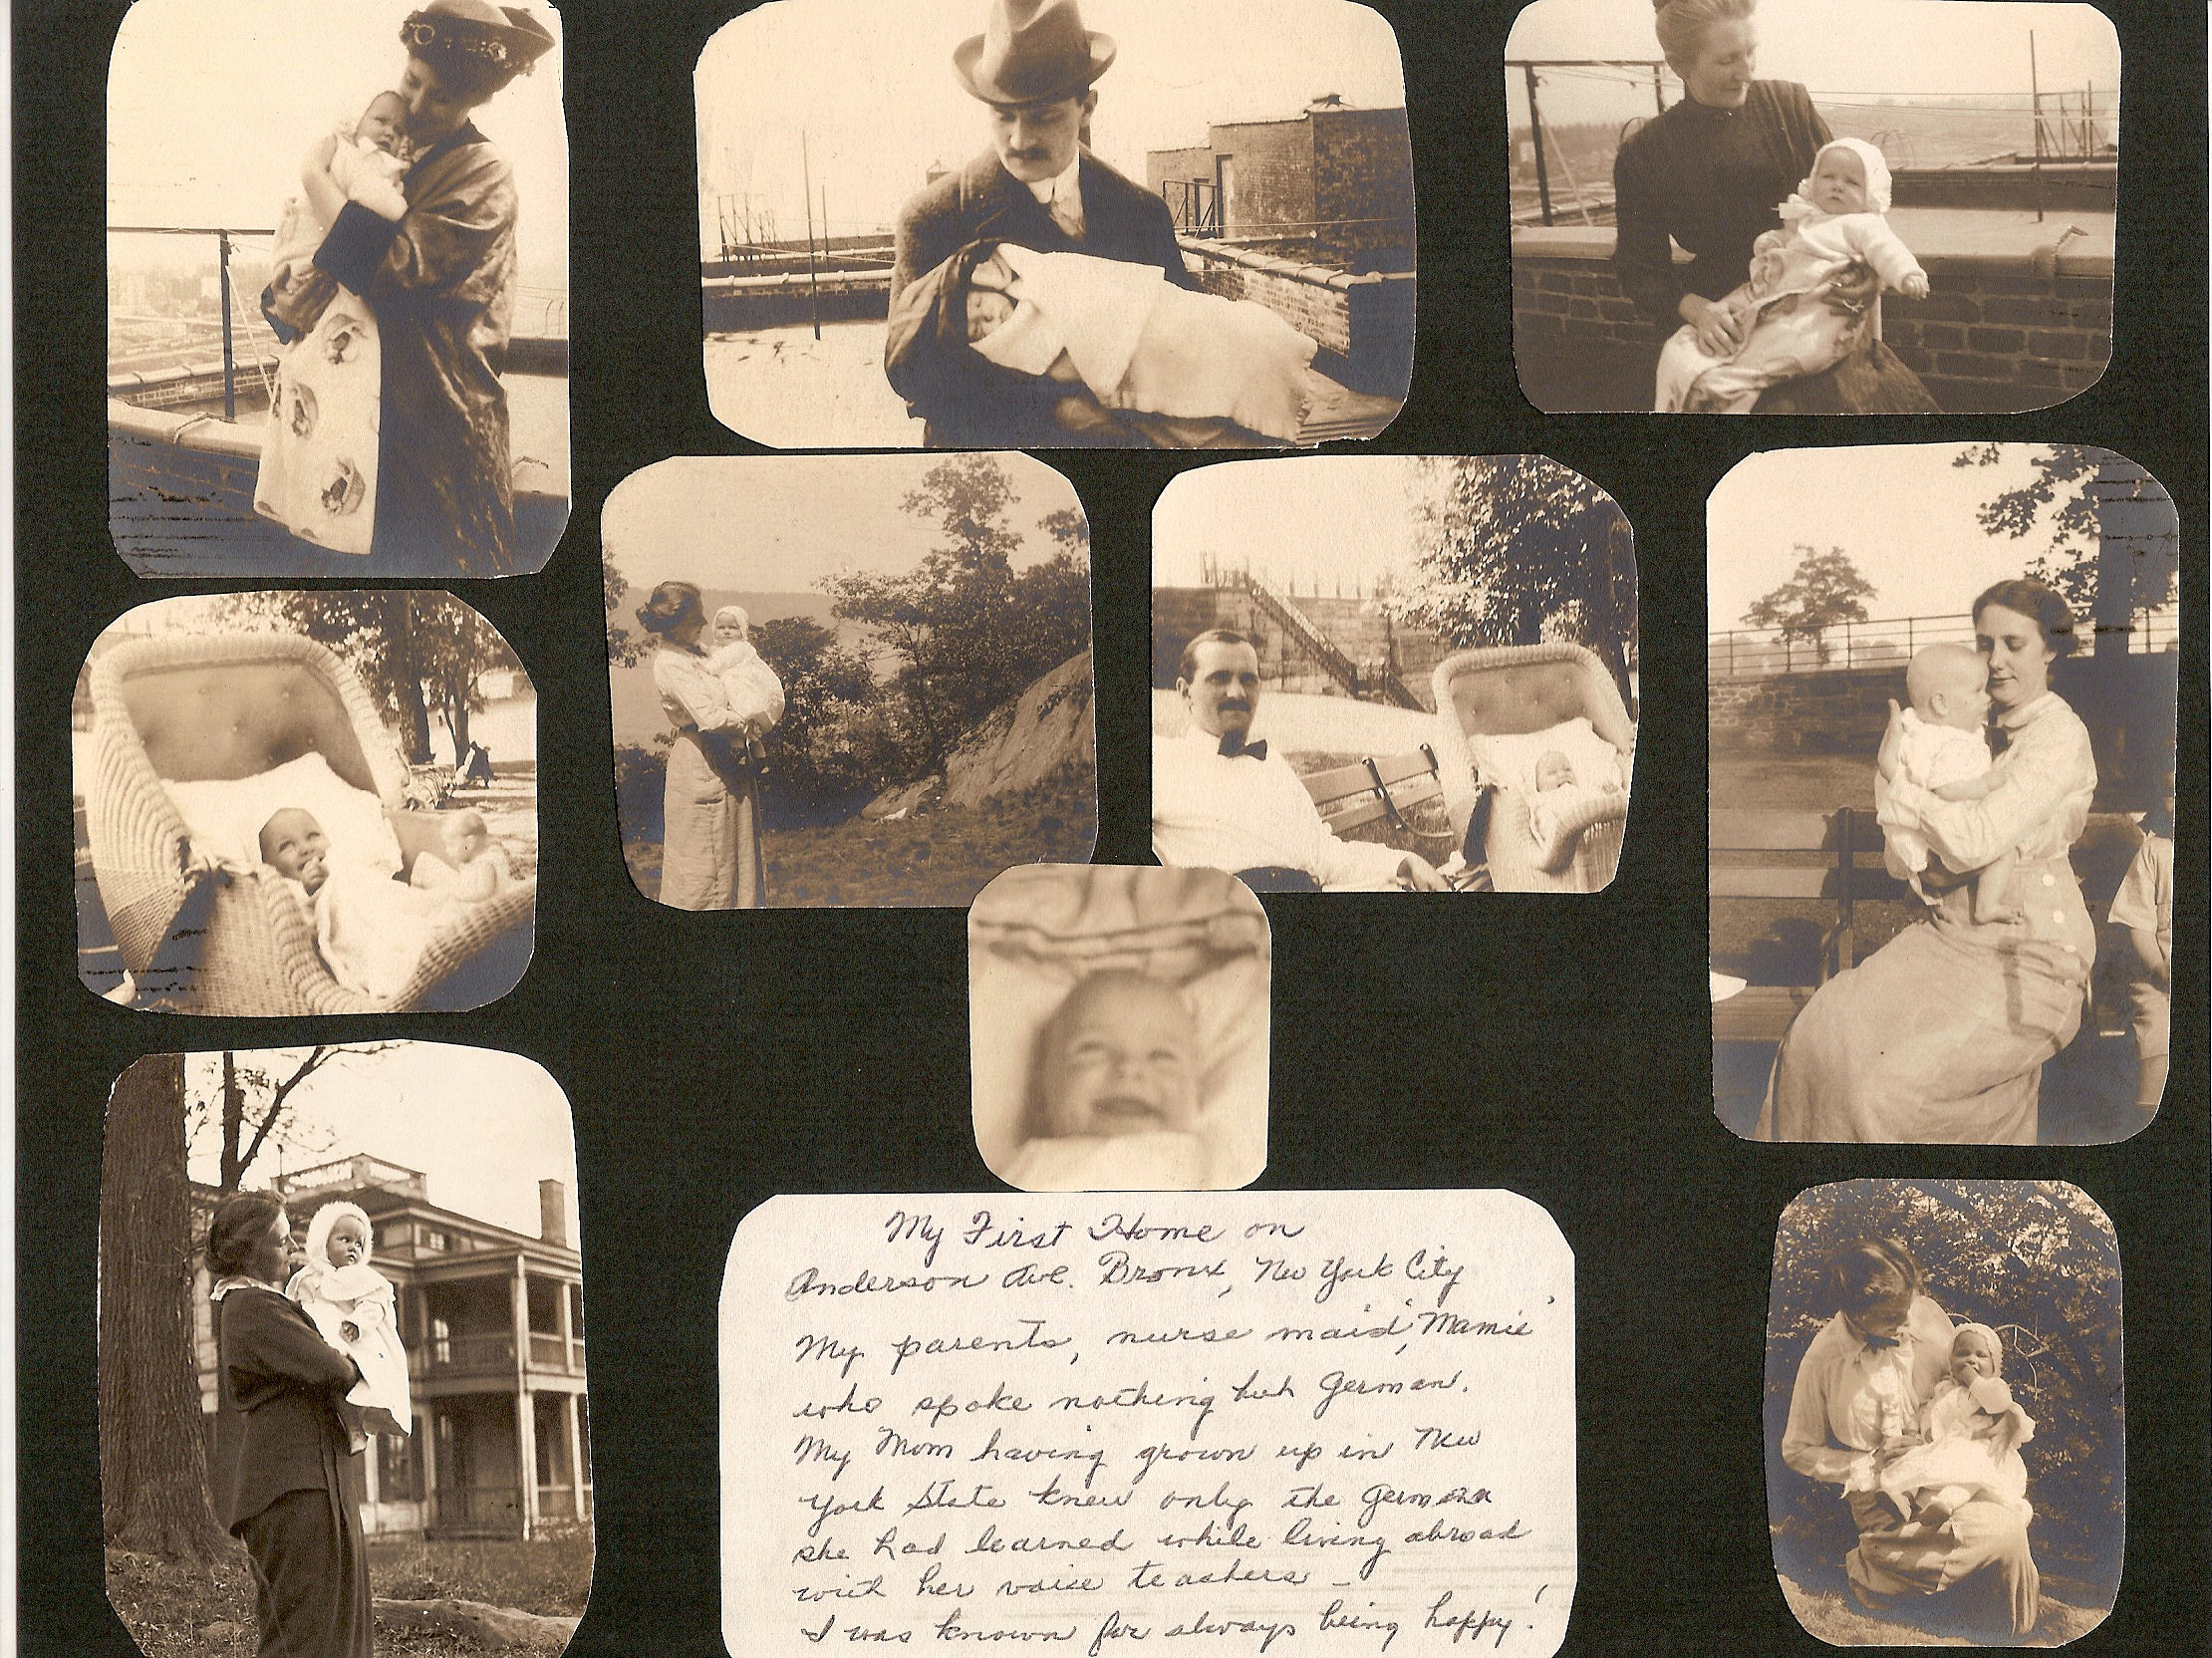 My First Home on
Anderson Ave. Bronx, New York City
My parents, nurse maid, 'Mamie'
who spoke nothing but German.
My Mom having grown up in New
York State knew only the German
she had learned while living abroad
with her voice teachers –
I was known for always being happy!